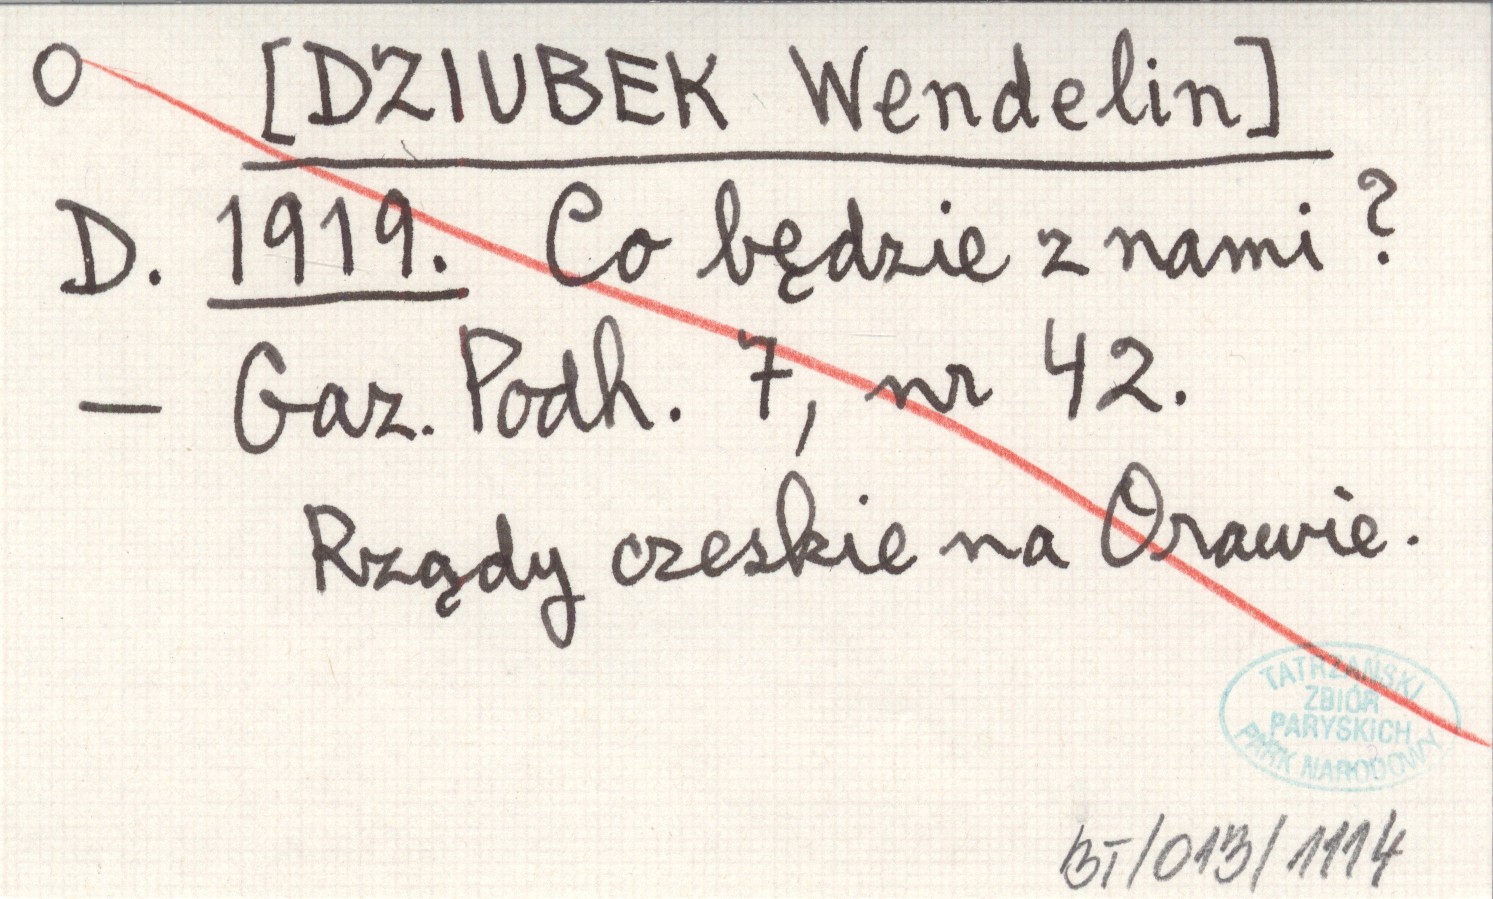 O [DZIUBEK Wendelin]
D. 1919. Co będzie z nami?
— Gaz. Podh. 7, nr 42.
Rządy czeskie na Orawie.
TATRZAŃSKI
ZBIÓR
PARYSKICH
PARK NARODOWY
BT/013/1114